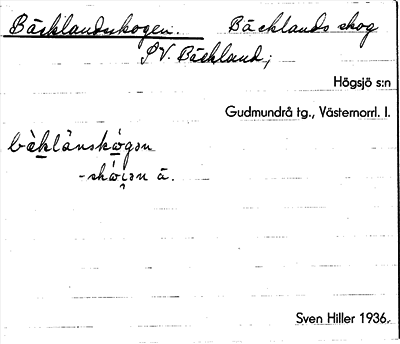 Bäcklandsskogen. Bäcklands skog
SV. Bäckland;
Högsjö s:n
Gudmundrå tg., Västernorrl. l.
bàklånskógən
-skóiən ä.
Sven Hiller 1936.